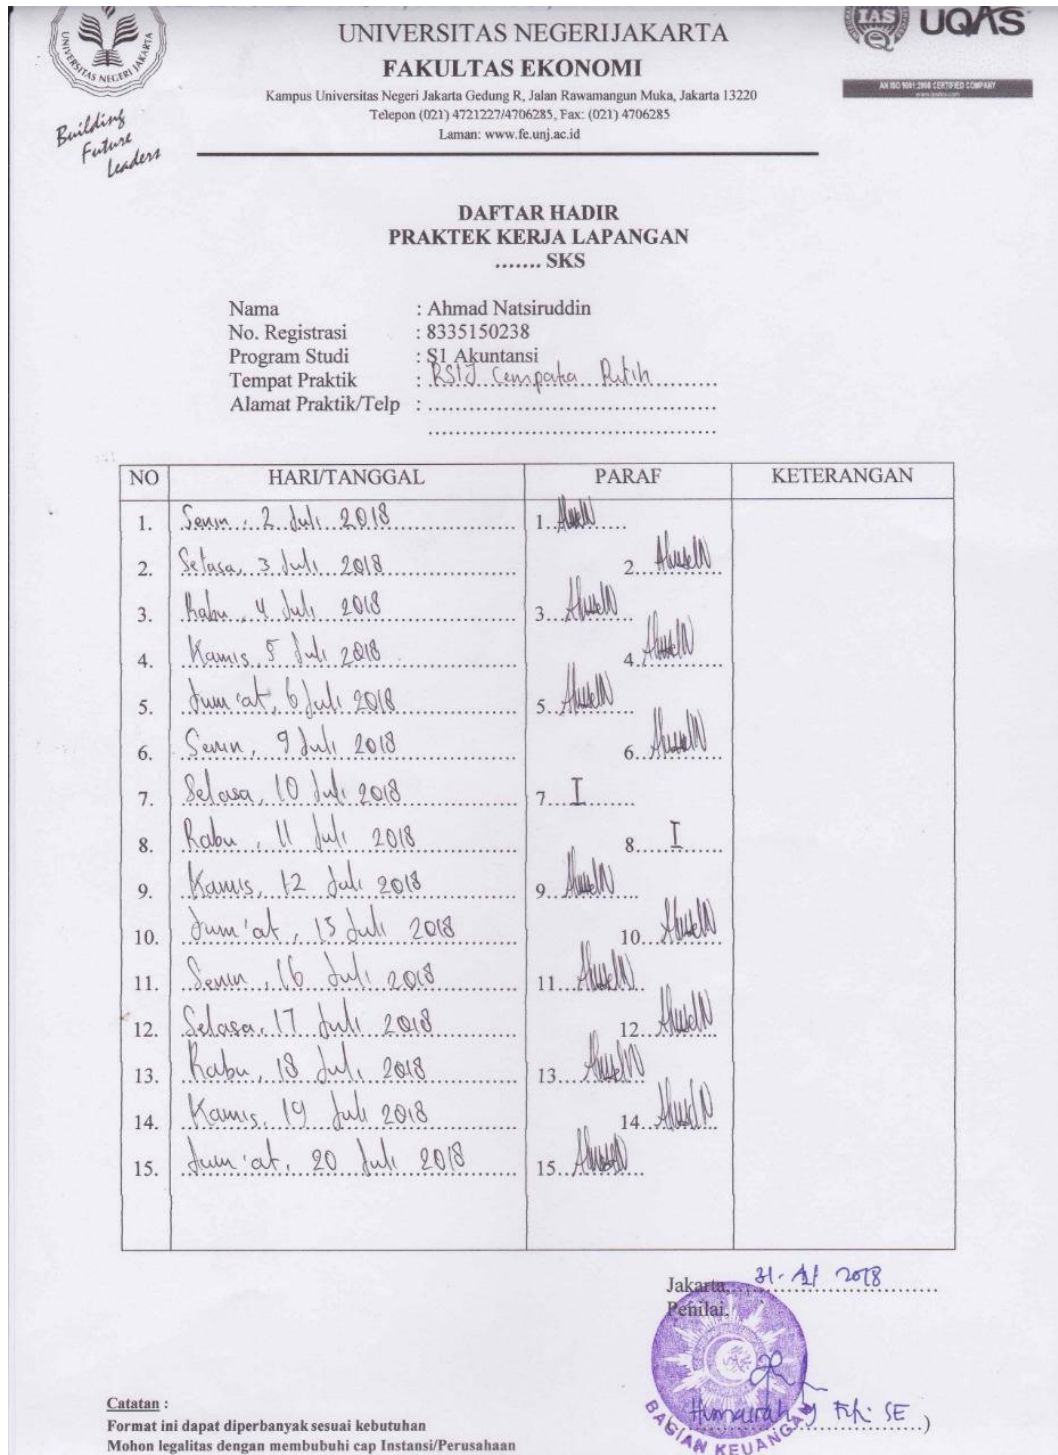 UNIVERSITAS NEGERI JAKARTA
Building
Future
Leaders
UNIVERSITAS NEGERIJAKARTA
FAKULTAS EKONOMI
Kampus Universitas Negeri Jakarta Gedung R, Jalan Rawamangun Muka, Jakarta 13220
Telepon (021) 4721227/4706285, Fax: (021) 4706285
Laman: www.fe.unj.ac.id
IAS UQAS
AN ISO 9001:2008 CERTIFIED COMPANY
DAFTAR HADIR
PRAKTEK KERJA LAPANGAN
....... SKS
Nama : Ahmad Natsiruddin
No. Registrasi : 8335150238
Program Studi : S1 Akuntansi
Tempat Praktik : RSIJ Cempaka Putih
Alamat Praktik/Telp :
NO HARI/TANGGAL PARAF KETERANGAN
1. Senin, 2 Juli 2018 1.
2. Selasa, 3 Juli 2018 2.
3. Rabu, 4 Juli 2018 3.
4. Kamis, 5 Juli 2018 4.
5. Jum'at, 6 Juli 2018 5.
6. Senin, 9 Juli 2018 6.
7. Selasa, 10 Juli 2018 7. I
8. Rabu, 11 Juli 2018 8. I
9. Kamis, 12 Juli 2018 9.
10. Jum'at, 13 Juli 2018 10.
11. Senin, 16 Juli 2018 11.
12. Selasa, 17 Juli 2018 12.
13. Rabu, 18 Juli 2018 13.
14. Kamis, 19 Juli 2018 14.
15. Jum'at, 20 Juli 2018 15.
Jakarta, 31 - 2018
Penilai,
Humairah SE )
BAGIAN KEUANGAN
Catatan :
Format ini dapat diperbanyak sesuai kebutuhan
Mohon legalitas dengan membubuhi cap Instansi/Perusahaan